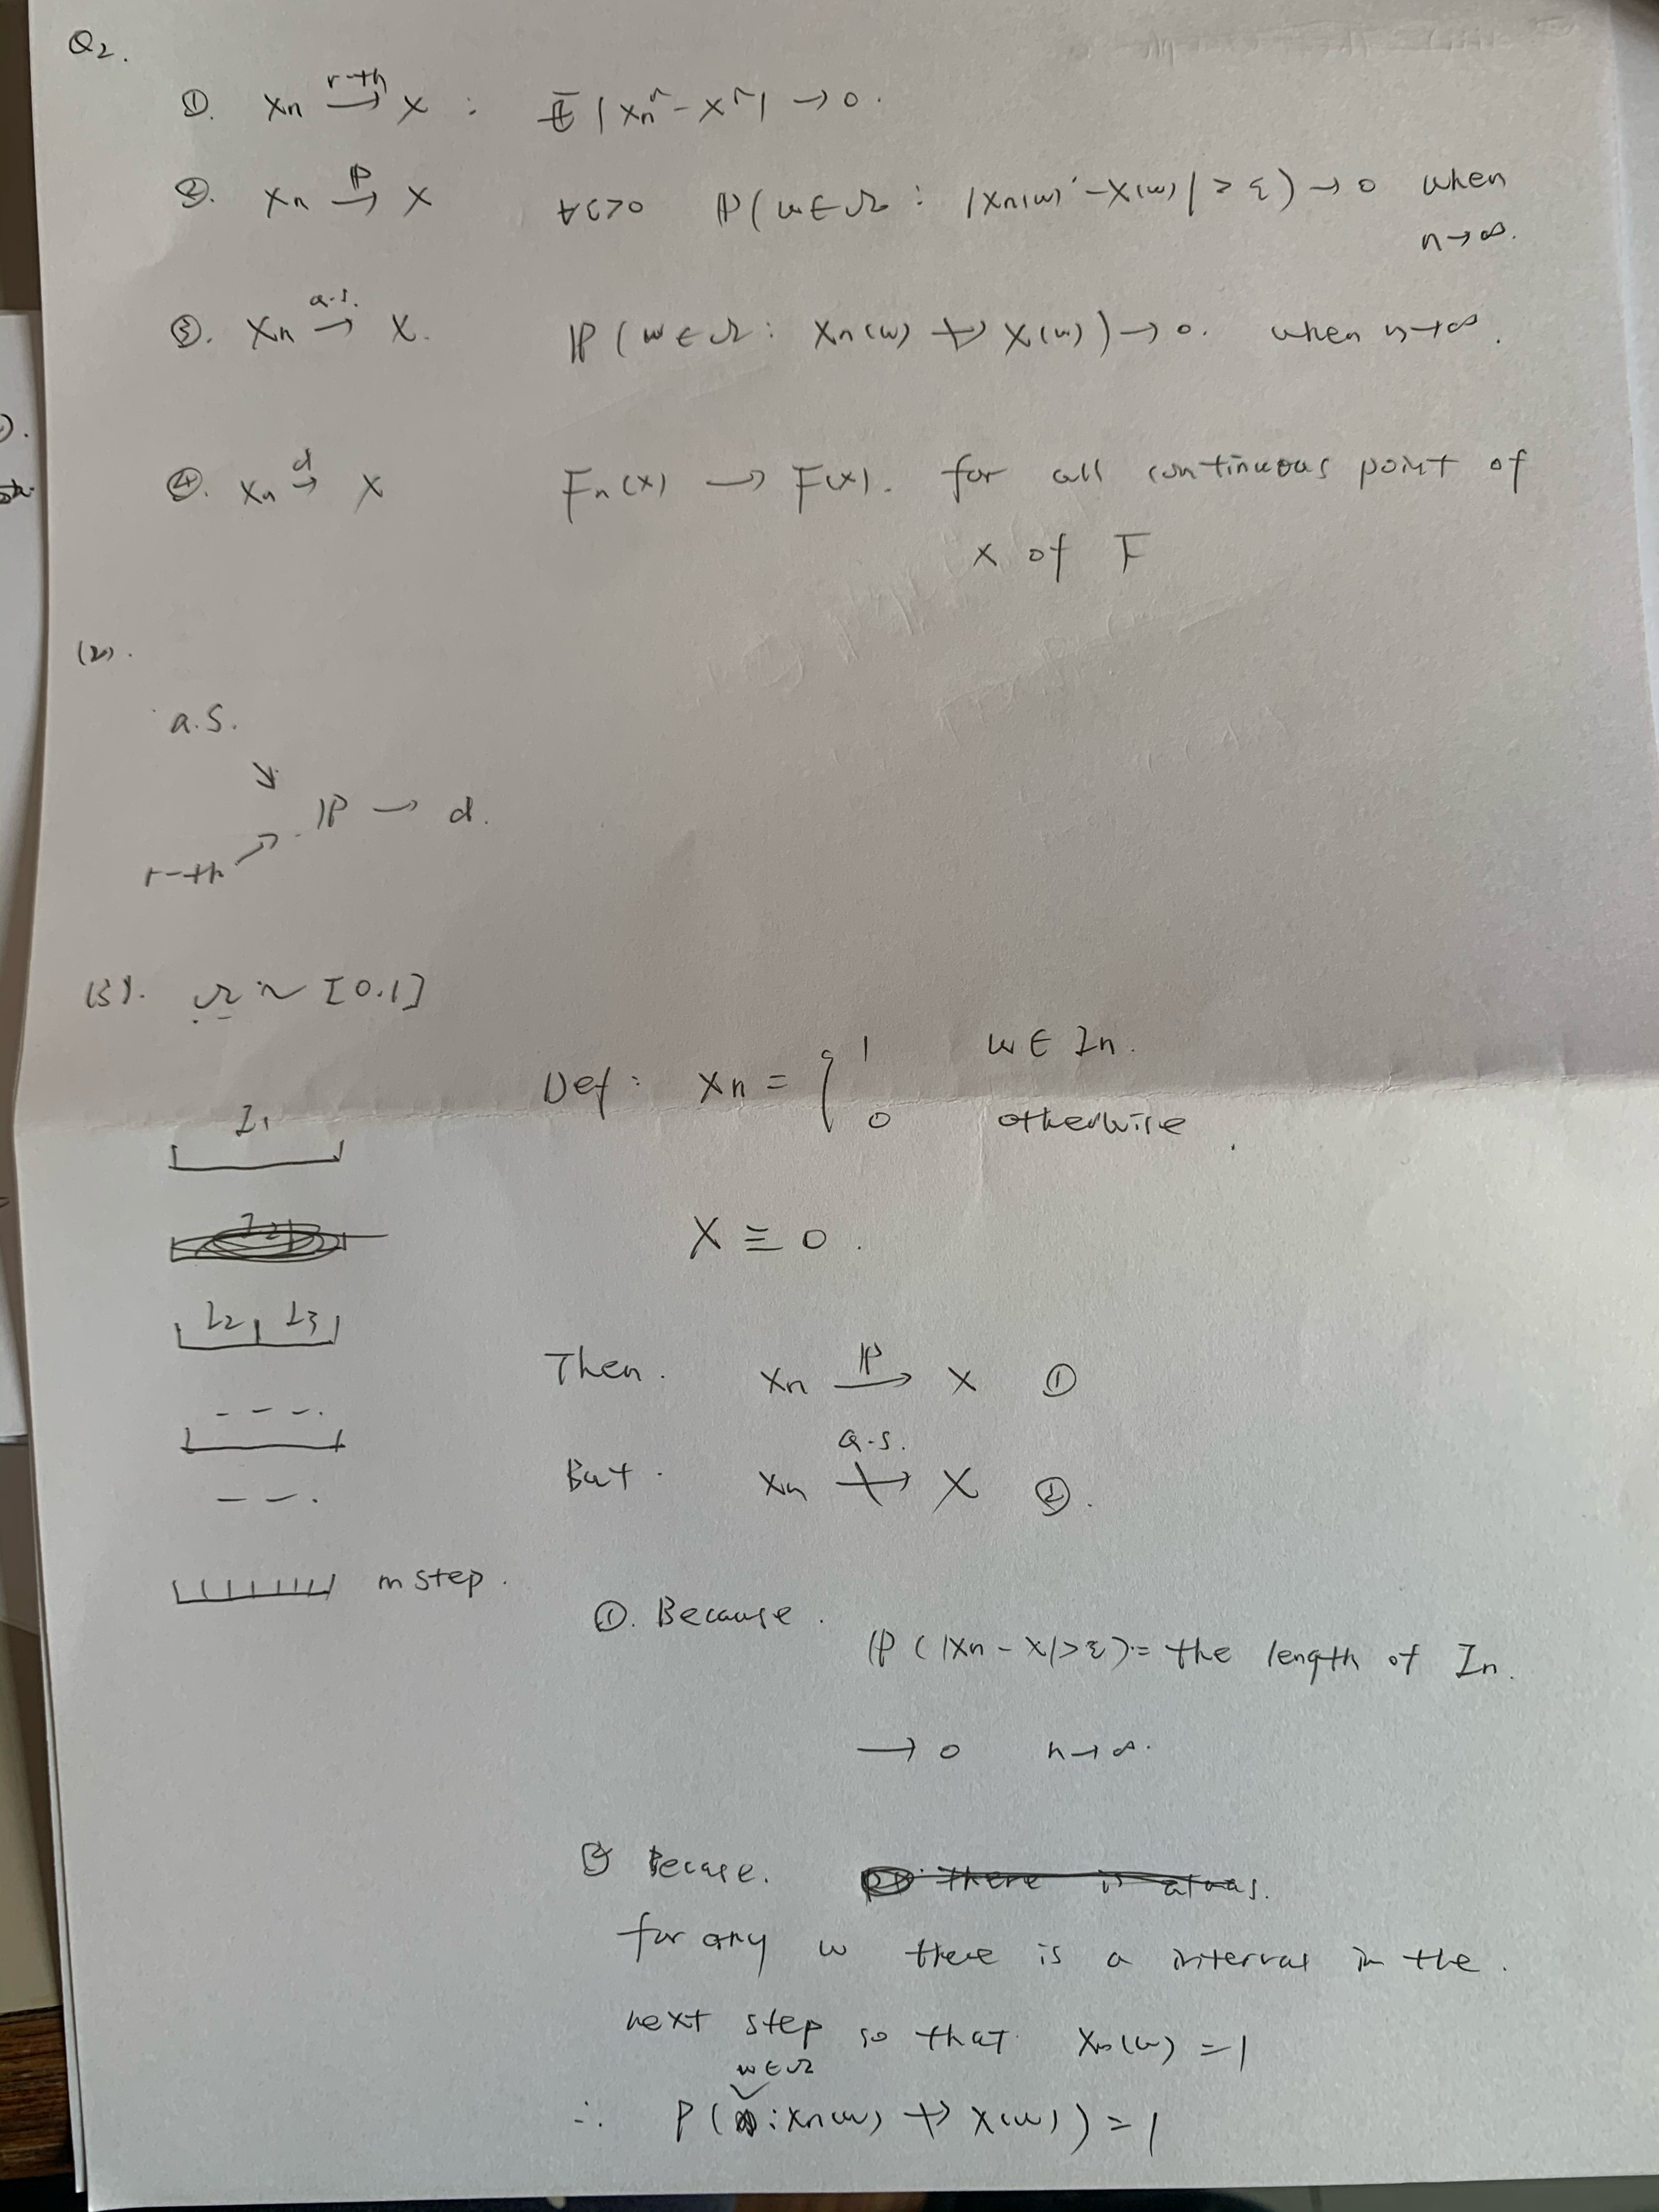 Q2.
①. Xn r-th→ X : E|Xn^r - X^r| → 0.
②. Xn ℙ→ X ∀ε>0 ℙ(ω∈Ω : |Xn(ω) - X(ω)| > ε) → 0 when
n→∞.
③. Xn a.s.→ X. ℙ(ω∈Ω : Xn(ω) ↛ X(ω)) → 0. when n→∞.
④. Xn d→ X Fn(x) → F(x). for all continuous point of
x of F
(2).
a.s.
↘
ℙ → d.
r-th ↗
(3). Ω ~ [0.1]
Def: Xn = { 1 ω∈In.
0 otherwise.
I1
X ≡ 0.
I2 I3
Then. Xn ℙ→ X ①
- - -.
But. Xn a.s.↛ X ②.
- - .
m step.
①. Because.
ℙ(|Xn - X|>ε) = the length of In.
→ 0 n→∞.
② Becase. there is alwas.
for any ω there is a interval in the.
next step so that Xn(ω) = 1
ω∈Ω
∴ P( : Xn(ω) ↛ X(ω)) = 1